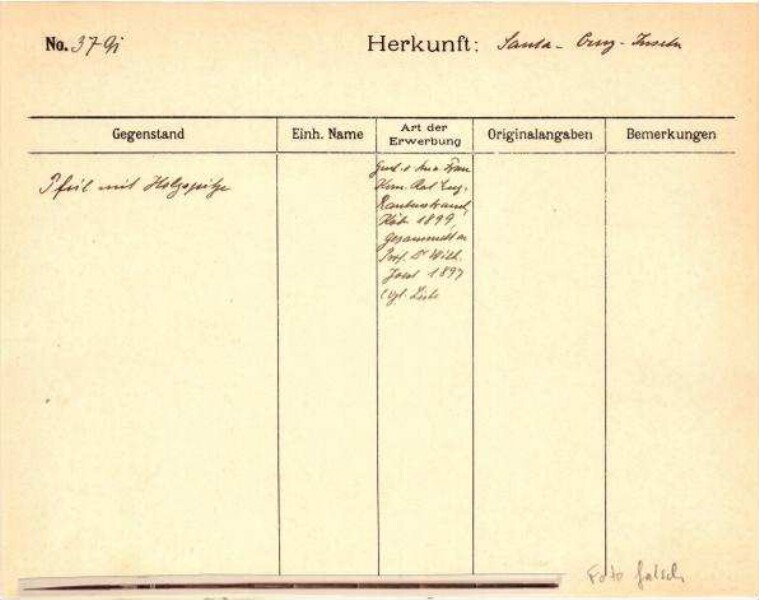 No. 379i
Herkunft: Santa-Cruz-Inseln
Gegenstand
Einh. Name
Art der
Erwerbung
Originalangaben
Bemerkungen
Pfeil mit Holzspitze
Gesch. v. Frau
Kom. Rat Eug.
Rautenstrauch,
Köln 1899,
gesammelt v.
Prof. Dr Wilh.
Joest 1897
(vgl. Liste
Foto falsch